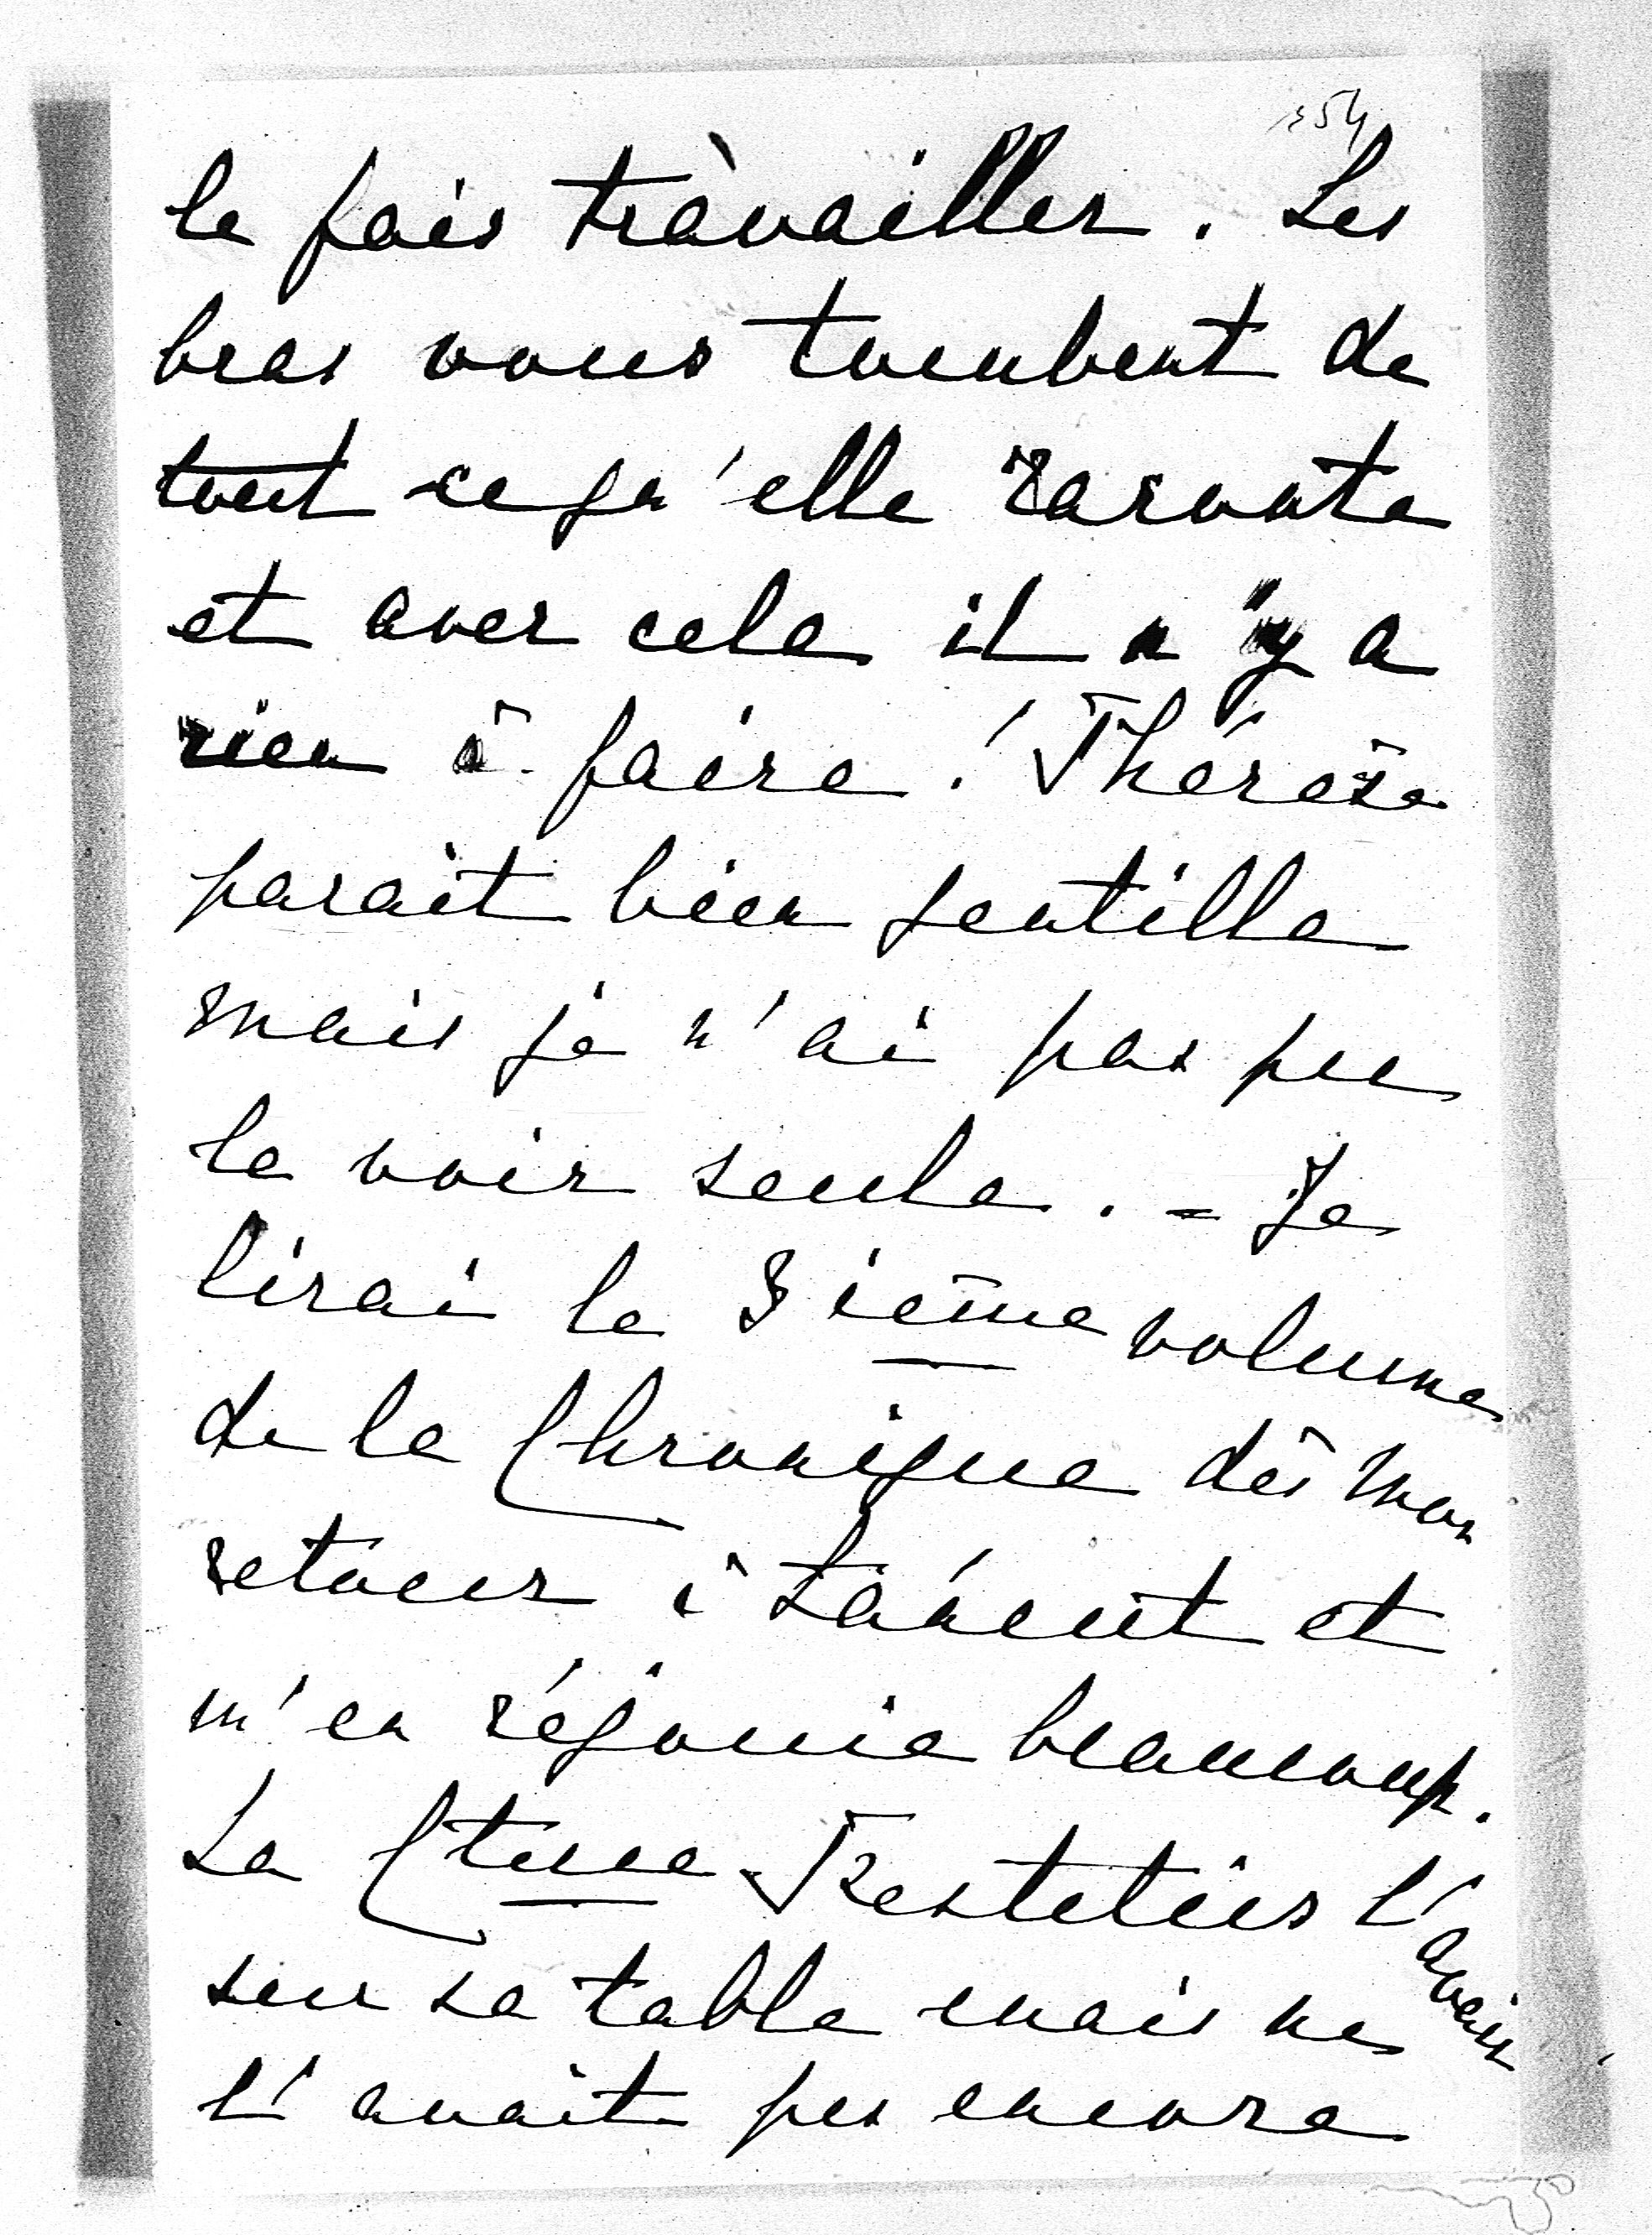 254
le fais travailler. Les
bras vous tombent de
tout ce qu'elle raconte
et avec cela il n'y a
rien à faire! Thérèse
parait bien gentille
mais je n'ai pas pu
la voir seule. - Je
lirai le 3ième volume
de la Chronique dès mon
retour à et
m'en réjouie beaucoup.
La Ctesse Festetics l'avait
sur sa table mais ne
l'avait pas encore